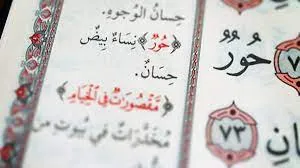 حِسَانُ الْوُجُوهِ.
﴿حُورٌ﴾ نِسَاءٌ بِيضٌ
حِسَانٌ.
﴿مَقْصُورَاتٌ فِي الْخِيَامِ﴾
مُخَدَّرَاتٌ فِي بُيُوتٍ مِنَ
حُورٌ
٧٣